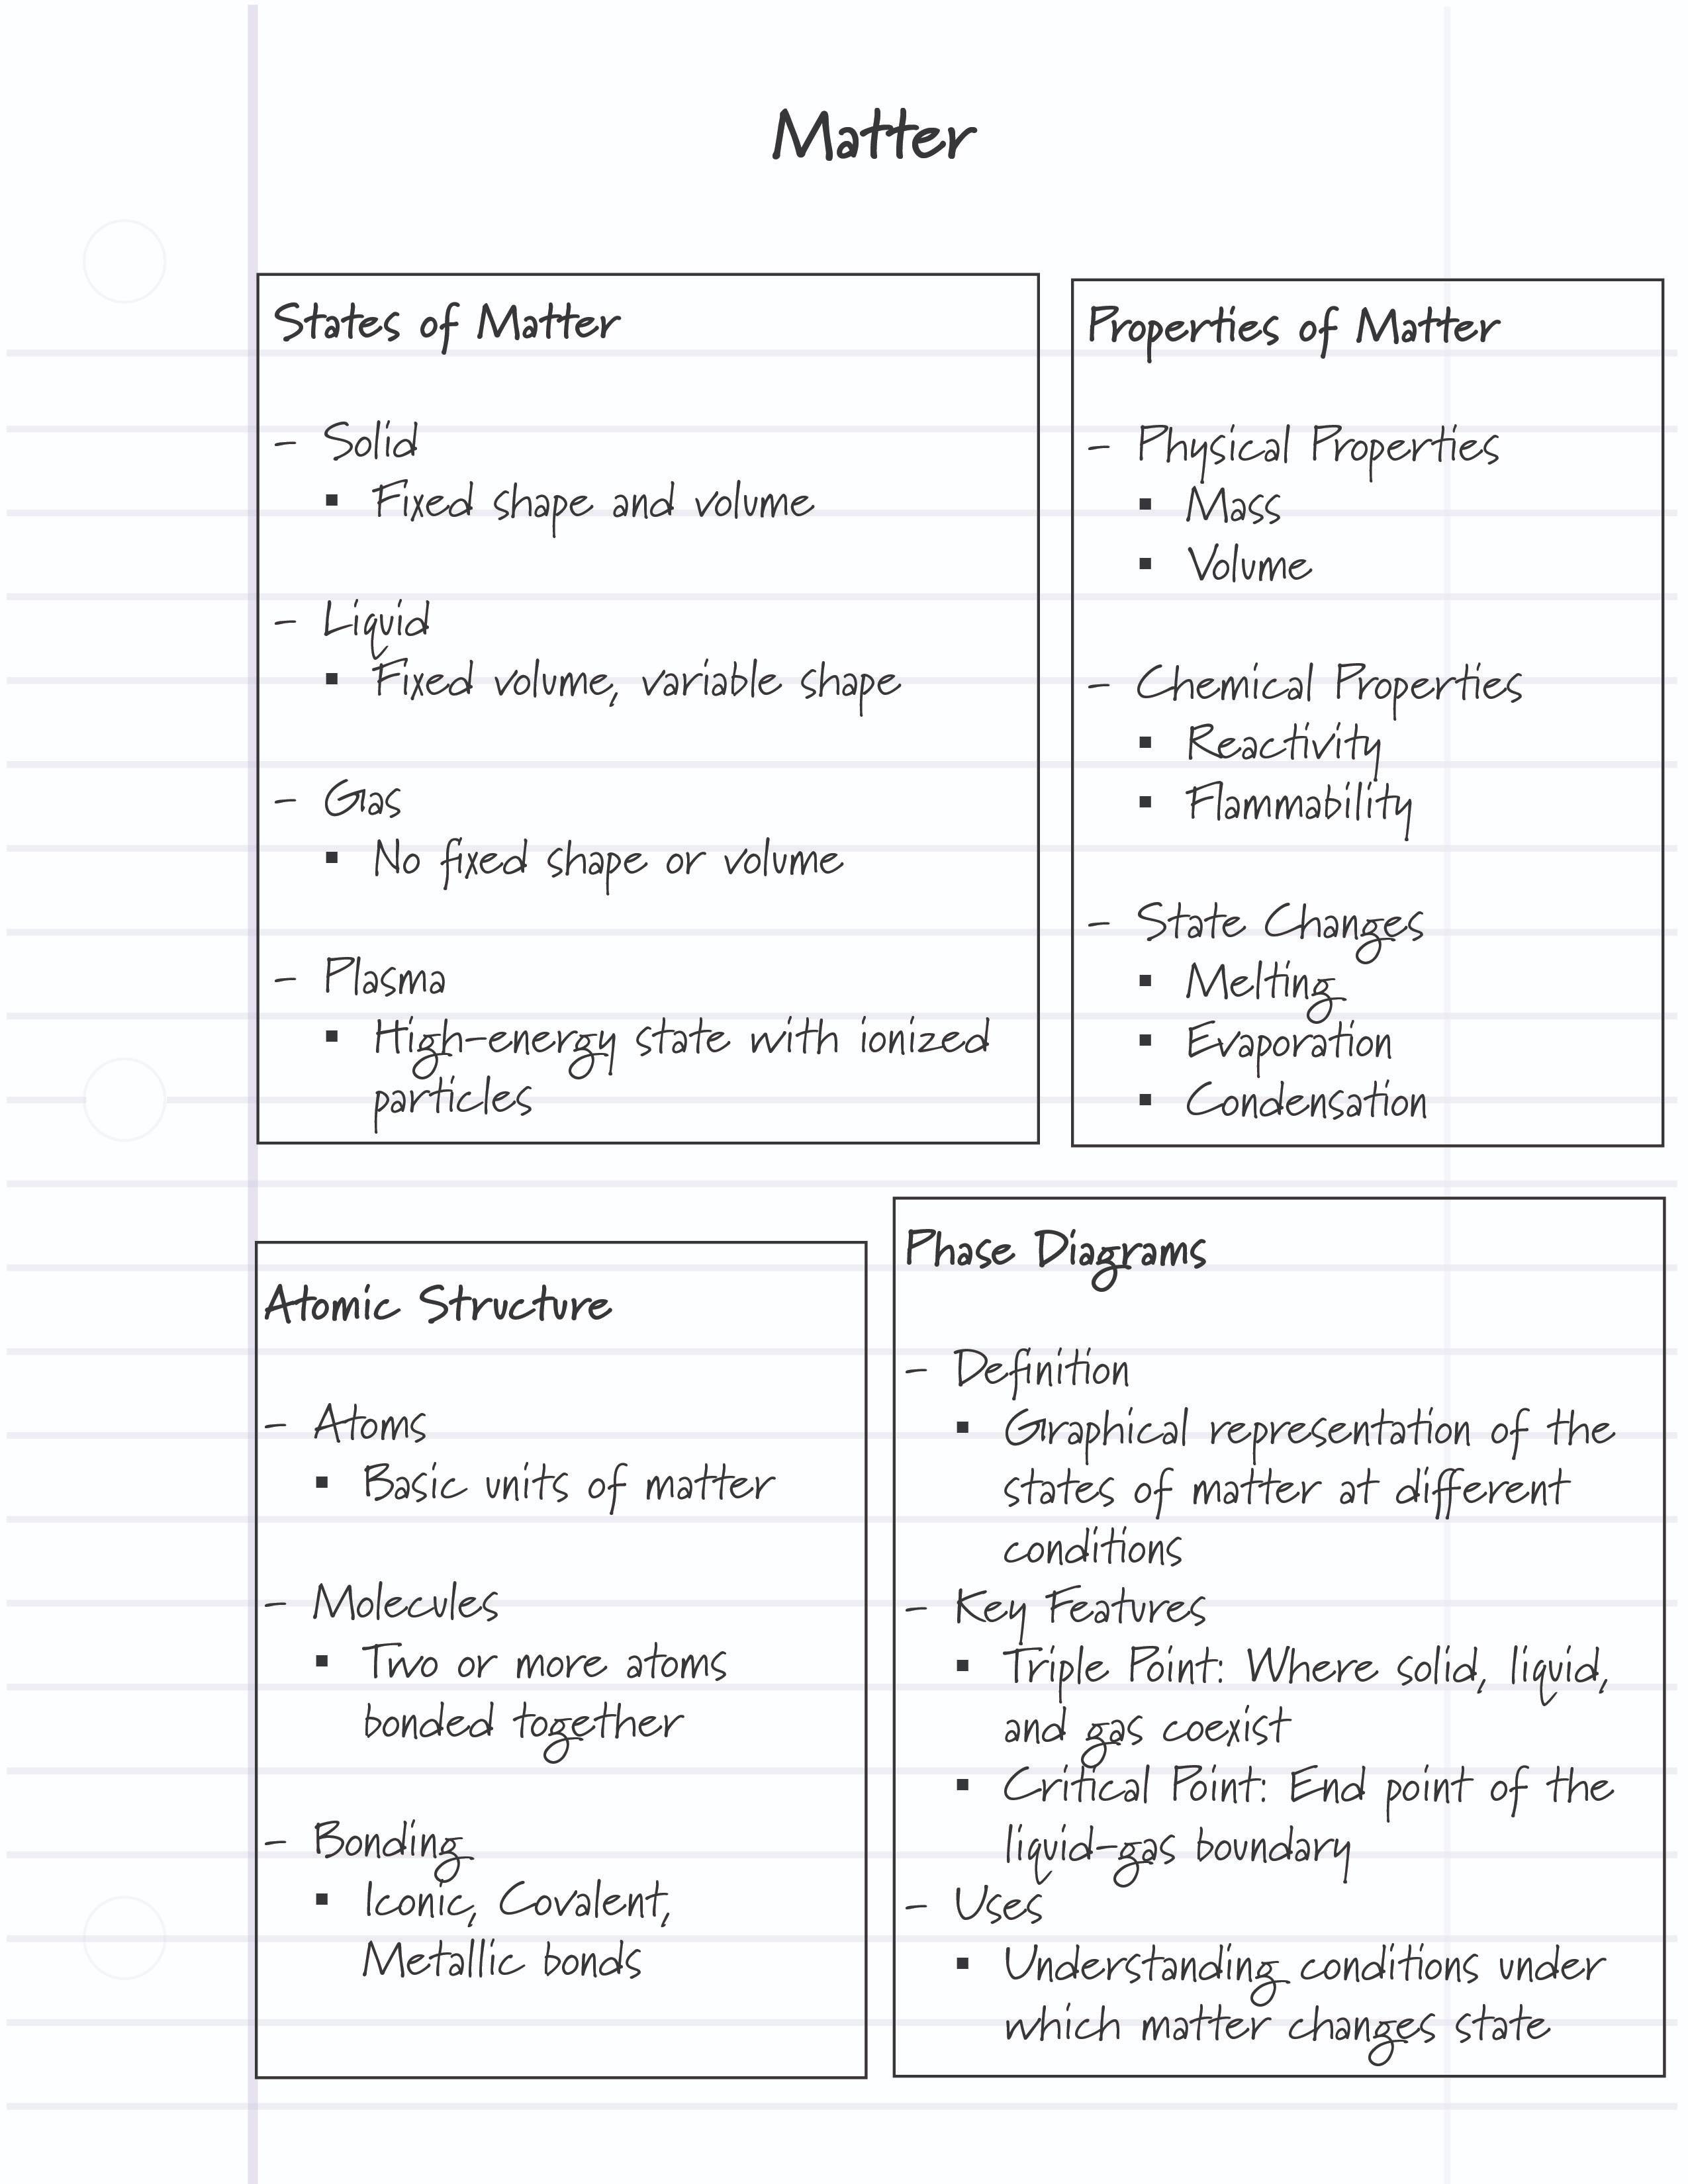 Matter
States of Matter
– Solid
▪ Fixed shape and volume
– Liquid
▪ Fixed volume, variable shape
– Gas
▪ No fixed shape or volume
– Plasma
▪ High-energy state with ionized
particles
Properties of Matter
– Physical Properties
▪ Mass
▪ Volume
– Chemical Properties
▪ Reactivity
▪ Flammability
– State Changes
▪ Melting
▪ Evaporation
▪ Condensation
Atomic Structure
– Atoms
▪ Basic units of matter
– Molecules
▪ Two or more atoms
bonded together
– Bonding
▪ Iconic, Covalent,
Metallic bonds
Phase Diagrams
– Definition
▪ Graphical representation of the
states of matter at different
conditions
– Key Features
▪ Triple Point: Where solid, liquid,
and gas coexist
▪ Critical Point: End point of the
liquid-gas boundary
– Uses
▪ Understanding conditions under
which matter changes state